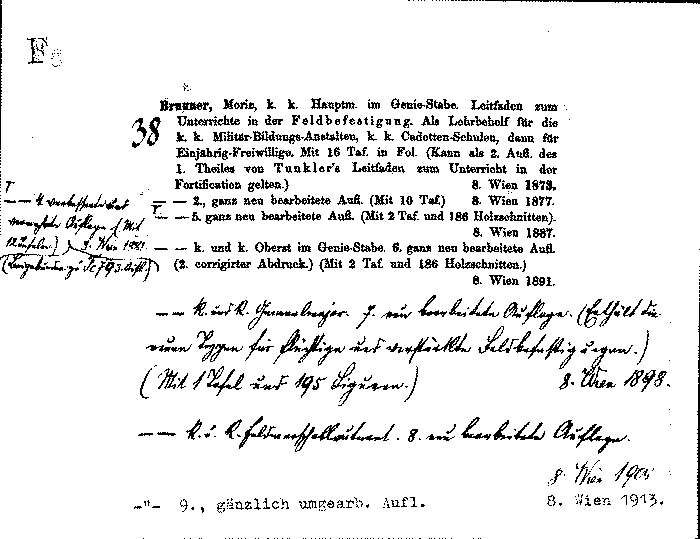 F 8
Brunner, Moriz, k. k. Hauptm. im Genie-Stabe. Leitfaden zum
38
Unterrichte in der Feldbefestigung. Als Lehrbehelf für die
k. k. Militär-Bildungs-Anstalten, k. k. Cadetten-Schulen, dann für
Einjährig-Freiwillige. Mit 16 Taf. in Fol. (Kann als 2. Aufl. des
1. Theiles von Tunkler's Leitfaden zum Unterricht in der
Fortification gelten.) 8. Wien 1873.
— — 2., ganz neu bearbeitete Aufl. (Mit 10 Taf.) 8. Wien 1877.
— — 4. verbesserte und
vermehrte Auflage (Mit
Tafeln.) 8. Wien
— — 5. ganz neu bearbeitete Aufl. (Mit 2 Taf. und 186 Holzschnitten).
8. Wien 1887.
— — k. und k. Oberst im Genie-Stabe. 6. ganz neu bearbeitete Aufl.
(2. corrigirter Abdruck.) (Mit 2 Taf. und 186 Holzschnitten.)
8. Wien 1891.
— — K. und K. Generalmajor. 7. neu bearbeitete Auflage. (Enthält die
neuen Typen für flüchtige und verstärkte Feldbefestigungen.)
(Mit 1 Tafel und 195 Figuren.) 8. Wien 1898.
— — K. u. K. Feldmarschalleutnant. 8. neu bearbeitete Auflage.
8. Wien
—"— 9., gänzlich umgearb. Aufl. 8. Wien 1913.